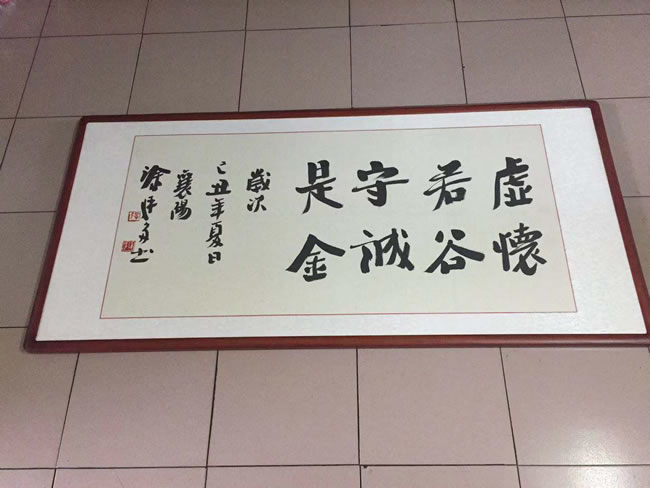 虛懷
若谷
守誠
是金
歲次
己丑年夏日
襄陽